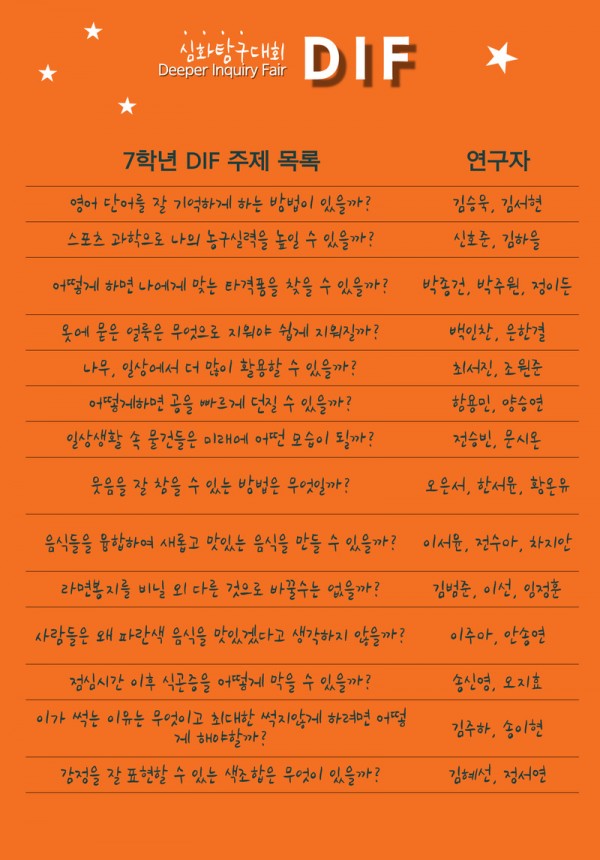 심화탐구대회
Deeper Inquiry Fair
DIF
7학년 DIF 주제 목록 연구자
영어 단어를 잘 기억하게 하는 방법이 있을까? 김승욱, 김서현
스포츠 과학으로 나의 농구실력을 높일 수 있을까? 신호준, 김하을
어떻게 하면 나에게 맞는 타격폼을 찾을 수 있을까? 박종건, 박주원, 정이든
옷에 묻은 얼룩은 무엇으로 지워야 쉽게 지워질까? 백인찬, 은한결
나무, 일상에서 더 많이 활용할 수 있을까? 최서진, 조원준
어떻게하면 공을 빠르게 던질 수 있을까? 함용민, 양승연
일상생활 속 물건들은 미래에 어떤 모습이 될까? 전승빈, 문시온
웃음을 잘 참을 수 있는 방법은 무엇일까? 오은서, 한서윤, 황온유
음식들을 융합하여 새롭고 맛있는 음식을 만들 수 있을까? 이서윤, 전수아, 차지안
라면봉지를 비닐 외 다른 것으로 바꿀수는 없을까? 김범준, 이선, 임정훈
사람들은 왜 파란색 음식을 맛있겠다고 생각하지 않을까? 이주아, 안송연
점심시간 이후 식곤증을 어떻게 막을 수 있을까? 송신영, 오지효
이가 썩는 이유는 무엇이고 최대한 썩지않게 하려면 어떻
게 해야할까? 김주하, 송이현
감정을 잘 표현할 수 있는 색조합은 무엇이 있을까? 김혜선, 정서연